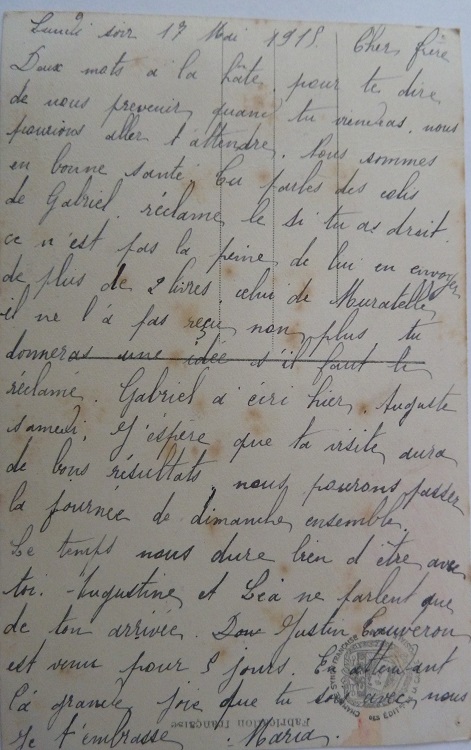 Lundi soir 17 Mai 1915 Cher frère
Deux mots a la hâte, pour te dire
de nous prevenir quand tu viendras, nous
pourions aller t'attendre. Nous sommes
en bonne santé. Tu parles des colis
de Gabriel, réclame le si tu as droit.
ce n'est pas la peine de lui en envoyer
de plus de 2 livres, celui de Muratelle
il ne l'a pas reçu non plus, tu
donneras une idée s'il faut le
réclamé. Gabriel a écri hier, Auguste
samedi. J'éspère que ta visite aura
de bons résultats, nous pourons passer
la journée de dimanche ensemble.
Le temps nous dure bien d'être avec
toi. Augustine et Léa ne parlent que
de ton arrivée. Justin
est venu pour 5 jours. En attendant
la grande joie que tu sois avec nous
Je t'embrasse. Maria.
Fabrication Française